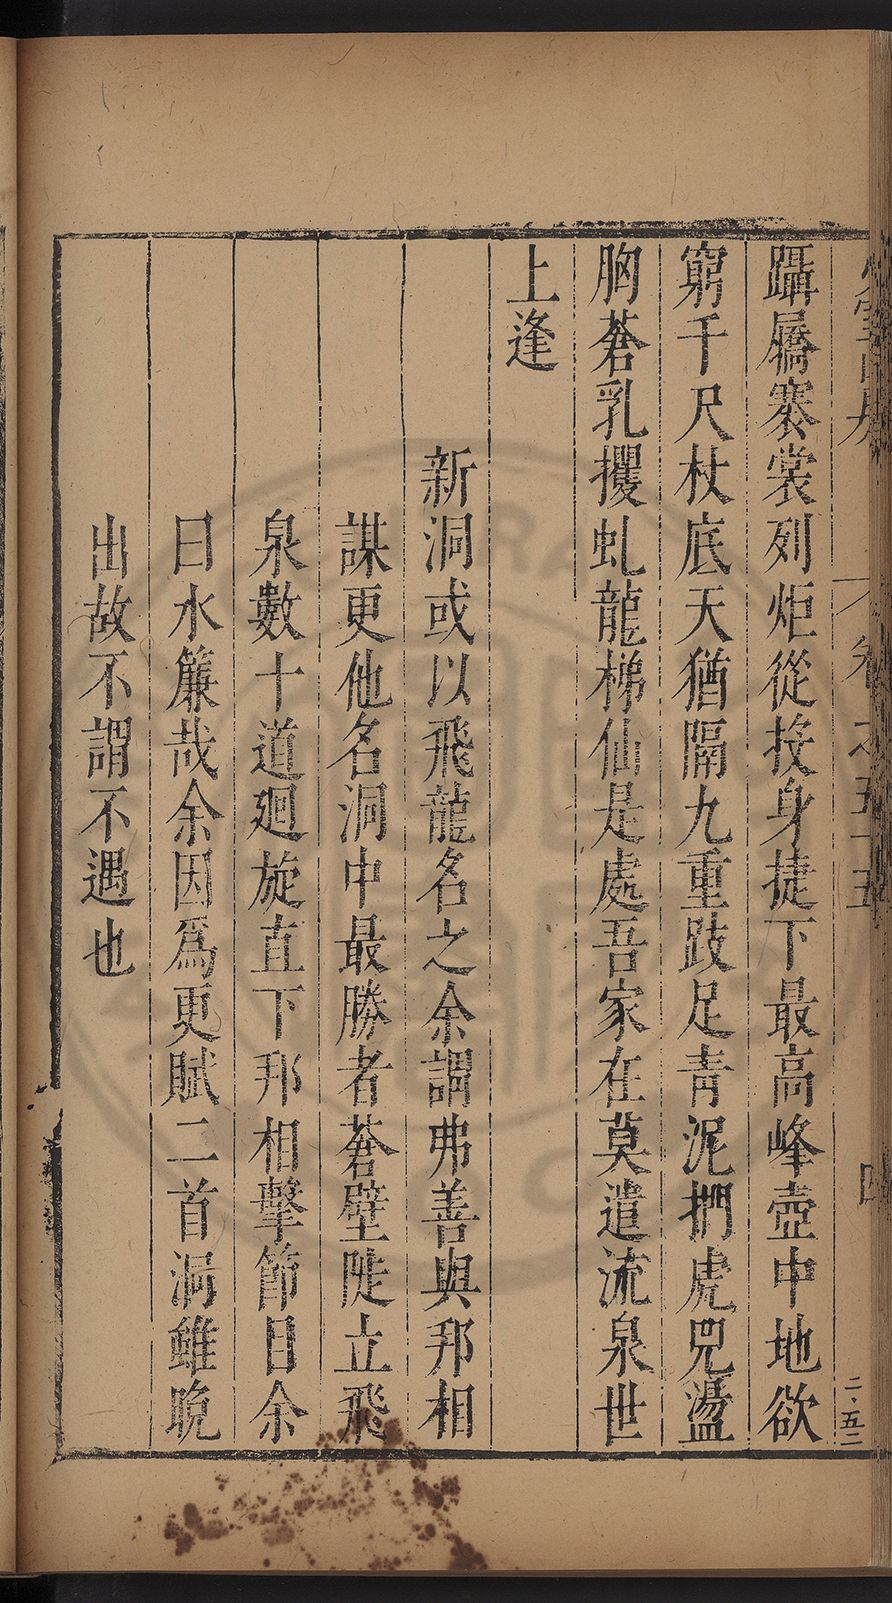 卷之五十五
四
二·五二
躡屩褰裳列炬從投身捷下最高峰壺中地欲
窮千尺杖底天猶隔九重跂足青泥捫虎兕盪
胸蒼乳攫虬龍梯仙是處吾家在莫遣流泉世
上逢
新洞或以飛龍名之余謂弗善與邦相
謀更他名洞中最勝者蒼壁陡立飛
泉數十道廻旋直下邦相擊節目余
曰水簾哉余因爲更賦二首洞雖晚
出故不謂不遇也